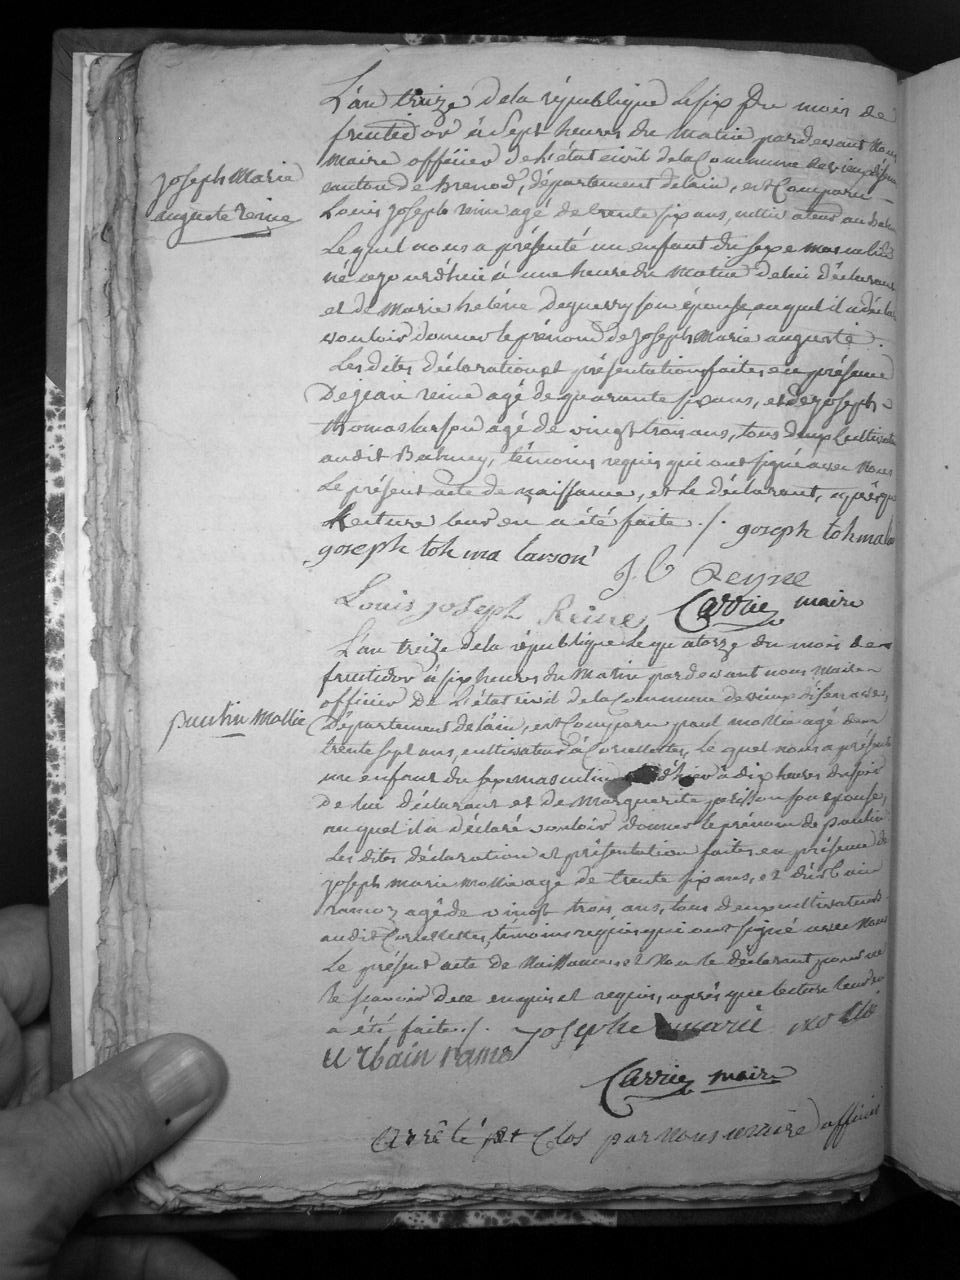 Joseph Marie
auguste reine
L'an treize de la république le six du mois de
fructidor à sept heures du matin pardevant nous
maire officier de l'état civil de la Commune de vieu d'isena
canton de brenod, département de lain, est Comparu
Louis joseph reine agé de trente six ans, cultivateur au
Lequel nous a présenté un enfant du sexe masculin
né cejourdhui à une heure du matin de lui déclarant
et de Marie heléne Deguerry son épouse, auquel il a déclaré
vouloir donner le prénom de joseph Marie auguste.
Les dites déclaration et présentation faites en présence
De jean reine agé de quarante six ans, et de joseph
thomas larson agé de vingt trois ans, tous deux Cultivateurs
audit témoins requis qui ont signé avec Nous
Le présent acte de naissance, et le déclarant, après que
Lecture leur en a été faite ./. joseph toh ma lar
goseph toh ma larson
J. B Reyne
Louis joseph Reine Carrier maire
paulin Mollie
L'an treize de la république le quatorze du mois de
fructidor à six heures du Matin pardevant nous maire
officier De L'état civil de la Commune de vieux d'isenave,
Département de lain, est Comparu paul mollie agé de
trente sept ans, cultivateur à Corcellettes, Le quel nous a présenté
un enfant du sexe masculin né d'hier à dix heures du soir
de lui déclarant et de Marguerite son épouse,
auquel il a déclaré vouloir donner le prénom de paulin
Les dites déclaration et présentation faites en présence de
joseph marie Mollie agé de trente six ans, et d'urbain
ramoz agé de vingt trois ans, tous deux cultivateurs
audit Corcellettes, témoins requis qui ont signé avec Nous
Le présent acte de Naissance, et Non le déclarant pour ne
le scavoir de ce enquis et requis, après que lecture leur en
a été faite ./. Josephe marie mollie
Urbain ramo
Carrier maire
Arrêté et Clos par nous maire officier